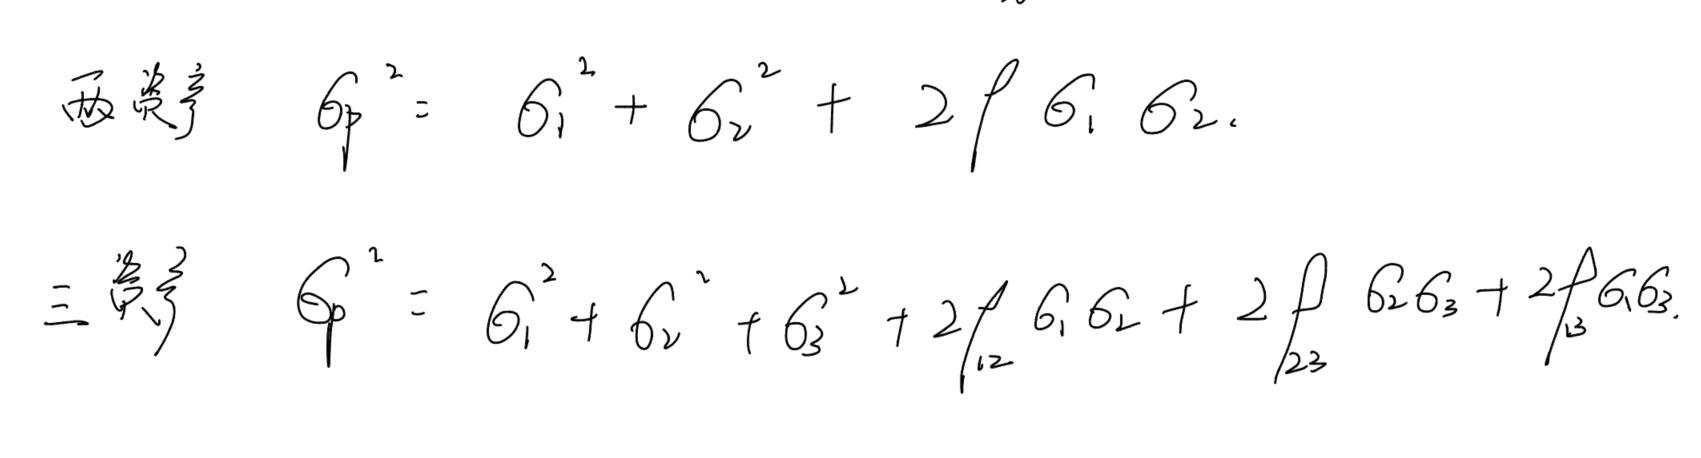 两资产 σp² = σ₁² + σ₂² + 2ρ σ₁ σ₂.
三资产 σp² = σ₁² + σ₂² + σ₃² + 2ρ₁₂ σ₁σ₂ + 2ρ₂₃ σ₂σ₃ + 2ρ₁₃ σ₁σ₃.